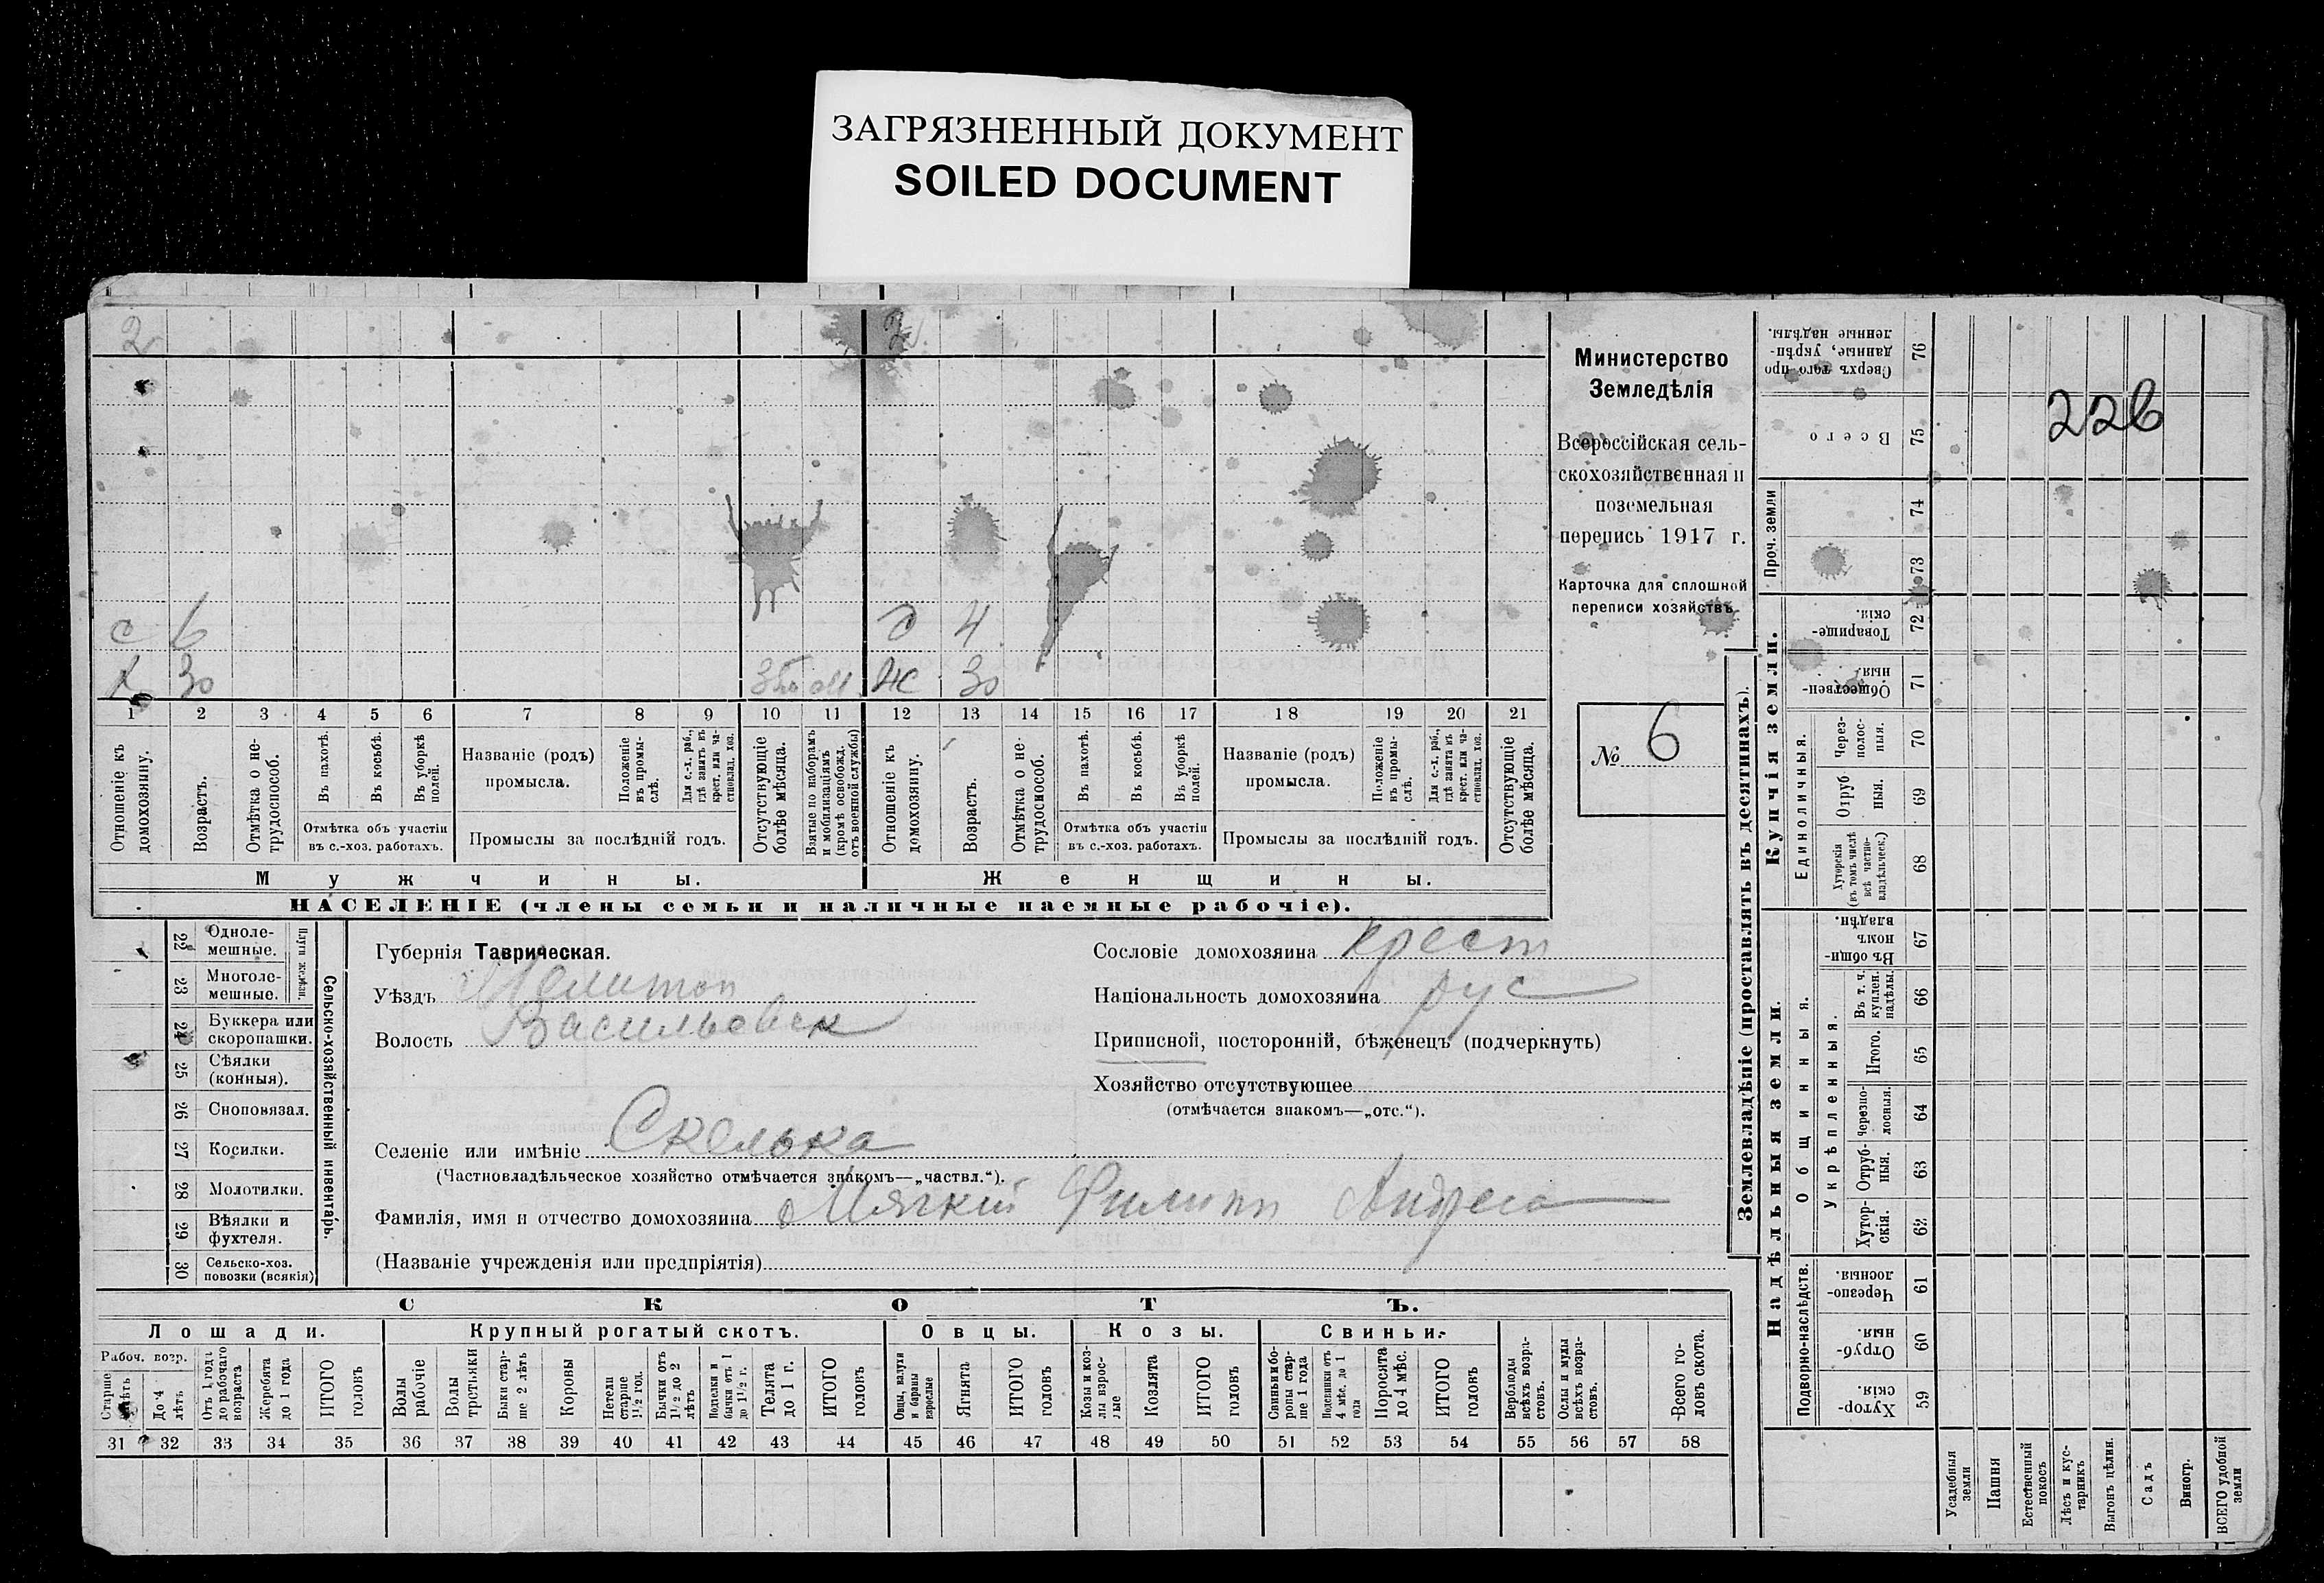 ЗАГРЯЗНЕННЫЙ ДОКУМЕНТ
SOILED DOCUMENT
2 2
с 6 д 4
х 30 м ж 30
1 2 3 4 5 6 7 8 9 10 11 12 13 14 15 16 17 18 19 20 21
Отношеніе къ домохозяину.
Возрастъ.
Отмѣтка о нетрудоспособ.
Въ пахотѣ.
Въ косьбѣ.
Въ уборкѣ полей.
Отмѣтка объ участіи въ с.-хоз. работахъ.
Названіе (родъ) промысла.
Положеніе въ промыслѣ.
Для с.-х. раб., гдѣ занятъ въ крест. или частновлад. хоз.
Промыслы за послѣдній годъ.
Отсутствующіе болѣе мѣсяца.
Взятые по наборамъ и мобилизаціямъ (кромѣ освобожд. отъ военной службы)
Отношеніе къ домохозяину.
Возрастъ.
Отмѣтка о нетрудоспособ.
Въ пахотѣ.
Въ косьбѣ.
Въ уборкѣ полей.
Отмѣтка объ участіи въ с.-хоз. работахъ.
Названіе (родъ) промысла.
Положеніе въ промыслѣ.
Для с.-х. раб., гдѣ занята въ крест. или частновлад. хоз.
Промыслы за послѣдній годъ.
Отсутствующіе болѣе мѣсяца.
Мужчины.
Женщины.
НАСЕЛЕНІЕ (члены семьи и наличные наемные рабочіе).
Министерство
Земледѣлія
Всероссійская сель-
скохозяйственная и
поземельная
перепись 1917 г.
Карточка для сплошной
переписи хозяйствъ
№ 6
22 Однолемешные.
23 Многолемешные.
Плуги желѣзн.
24 Буккера или скоропашки.
25 Сѣялки (конныя).
26 Сноповязал.
27 Косилки.
28 Молотилки.
29 Вѣялки и фухтеля.
30 Сельско-хоз. повозки (всякія)
Сельско-хозяйственный инвентарь.
Губернія Таврическая.
Уѣздъ Мелитоп
Волость Васильевск
Селеніе или имѣніе Скелька
(Частновладѣльческое хозяйство отмѣчается знакомъ—„частвл.“).
Фамилія, имя и отчество домохозяина Мягкій Филипп Андрее
(Названіе учрежденія или предпріятія)
Сословіе домохозяина крест
Національность домохозяина рус
Приписной, посторонній, бѣженецъ (подчеркнуть)
Хозяйство отсутствующее
(отмѣчается знакомъ—„отс.“).
СКОТЪ.
Лошади. Крупный рогатый скотъ. Овцы. Козы. Свиньи.
Рабоч. возр.
До 4 лѣтъ
Отъ 1 года до рабочаго возраста
Жеребята до 1 года
ИТОГО головъ
Волы рабочіе
Волы третьяки
Быки старше 2 лѣтъ
Коровы
Нетели старше 1 1/2 год.
Бычки отъ 1 1/2 до 2 лѣтъ
Подтелки и бычки отъ 1 до 1 1/2 г.
Телята до 1 г.
ИТОГО головъ
Овцы, валухи и бараны взрослые
Ягнята
ИТОГО головъ
Козы и козлы взрослые
Козлята
ИТОГО головъ
Свиньи и боровы старше 1 года
Подсвинки отъ 4 мѣс. до 1 года
Поросята до 4 мѣс.
ИТОГО головъ
Верблюды всѣхъ возрастовъ.
Ослы и мулы всѣхъ возрастовъ.
Всего головъ скота.
31 32 33 34 35 36 37 38 39 40 41 42 43 44 45 46 47 48 49 50 51 52 53 54 55 56 57 58
Землевладѣніе (проставлять въ десятинахъ).
Сверхъ того проданные, укрѣпленные надѣлы. 76
Всего 75
Проч. земли 74
73
Купчія земли.
Товарищескія. 72
Общественныя 71
Единоличныя.
Черезполосныя. 70
Отрубныя. 69
Хуторскія (въ томъ числѣ всѣ частновладѣльческ.) 68
Надѣльныя земли.
Общинныя.
Въ общинномъ владѣн. 67
Укрѣпленныя.
Въ т. ч. куплен. надѣлы. 66
Итого. 65
Черезполосныя. 64
Отрубныя. 63
Хуторскія. 62
Подворно-наслѣдств.
Черезполосныя. 61
Отрубныя. 60
Хуторскія. 59
Усадебныя земли
Пашня
Естественный покосъ
Лѣсъ и кустарникъ
Выгонъ цѣлин.
Садъ
Виногр.
ВСЕГО удобной земли
226